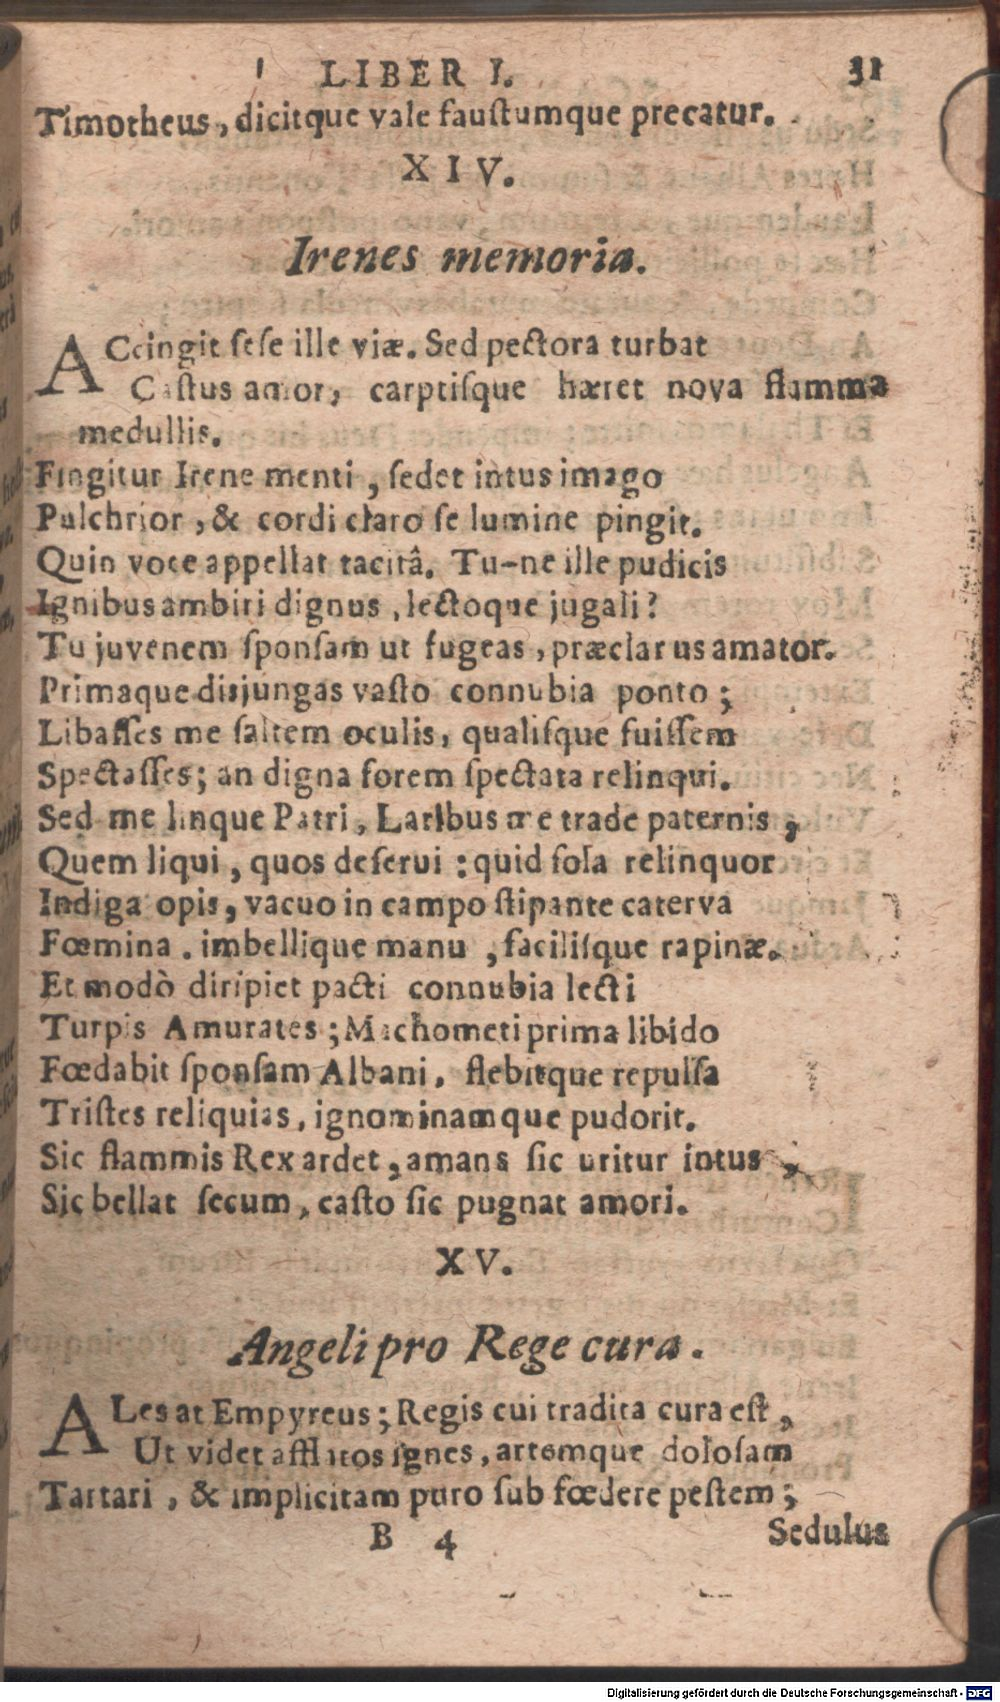 LIBER I. 31
Timotheus, dicitque vale faustumque precatur.
XIV.
Irenes memoria.
ACcingit sese ille viæ. Sed pectora turbat
Castus amor, carptisque hæret nova flamma
medullis.
Fingitur Irene menti, sedet intus imago
Pulchrior, & cordi claro se lumine pingit.
Quin voce appellat tacitâ. Tu-ne ille pudicis
Ignibus ambiri dignus, lectoque jugali?
Tu juvenem sponsam ut fugeas, præclarus amator.
Primaque disjungas vasto connubia ponto;
Libasses me saltem oculis, qualisque fuissem
Spectasses; an digna forem spectata relinqui.
Sed me linque Patri, Laribus me trade paternis,
Quem liqui, quos deserui: quid sola relinquor
Indiga opis, vacuo in campo stipante caterva
Fœmina. imbellique manu, facilisque rapinæ.
Et modò diripiet pacti connubia lecti
Turpis Amurates; Machometi prima libido
Fœdabit sponsam Albani, flebitque repulsa
Tristes reliquias, ignominamque pudorit.
Sic flammis Rex ardet, amans sic uritur intus,
Sic bellat secum, casto sic pugnat amori.
XV.
Angeli pro Rege cura.
ALes at Empyreus; Regis cui tradita cura est,
Ut videt afflatos ignes, artemque dolosam
Tartari, & implicitam puro sub fœdere pestem;
B 4 Sedulus
Digitalisierung gefördert durch die Deutsche Forschungsgemeinschaft - DFG